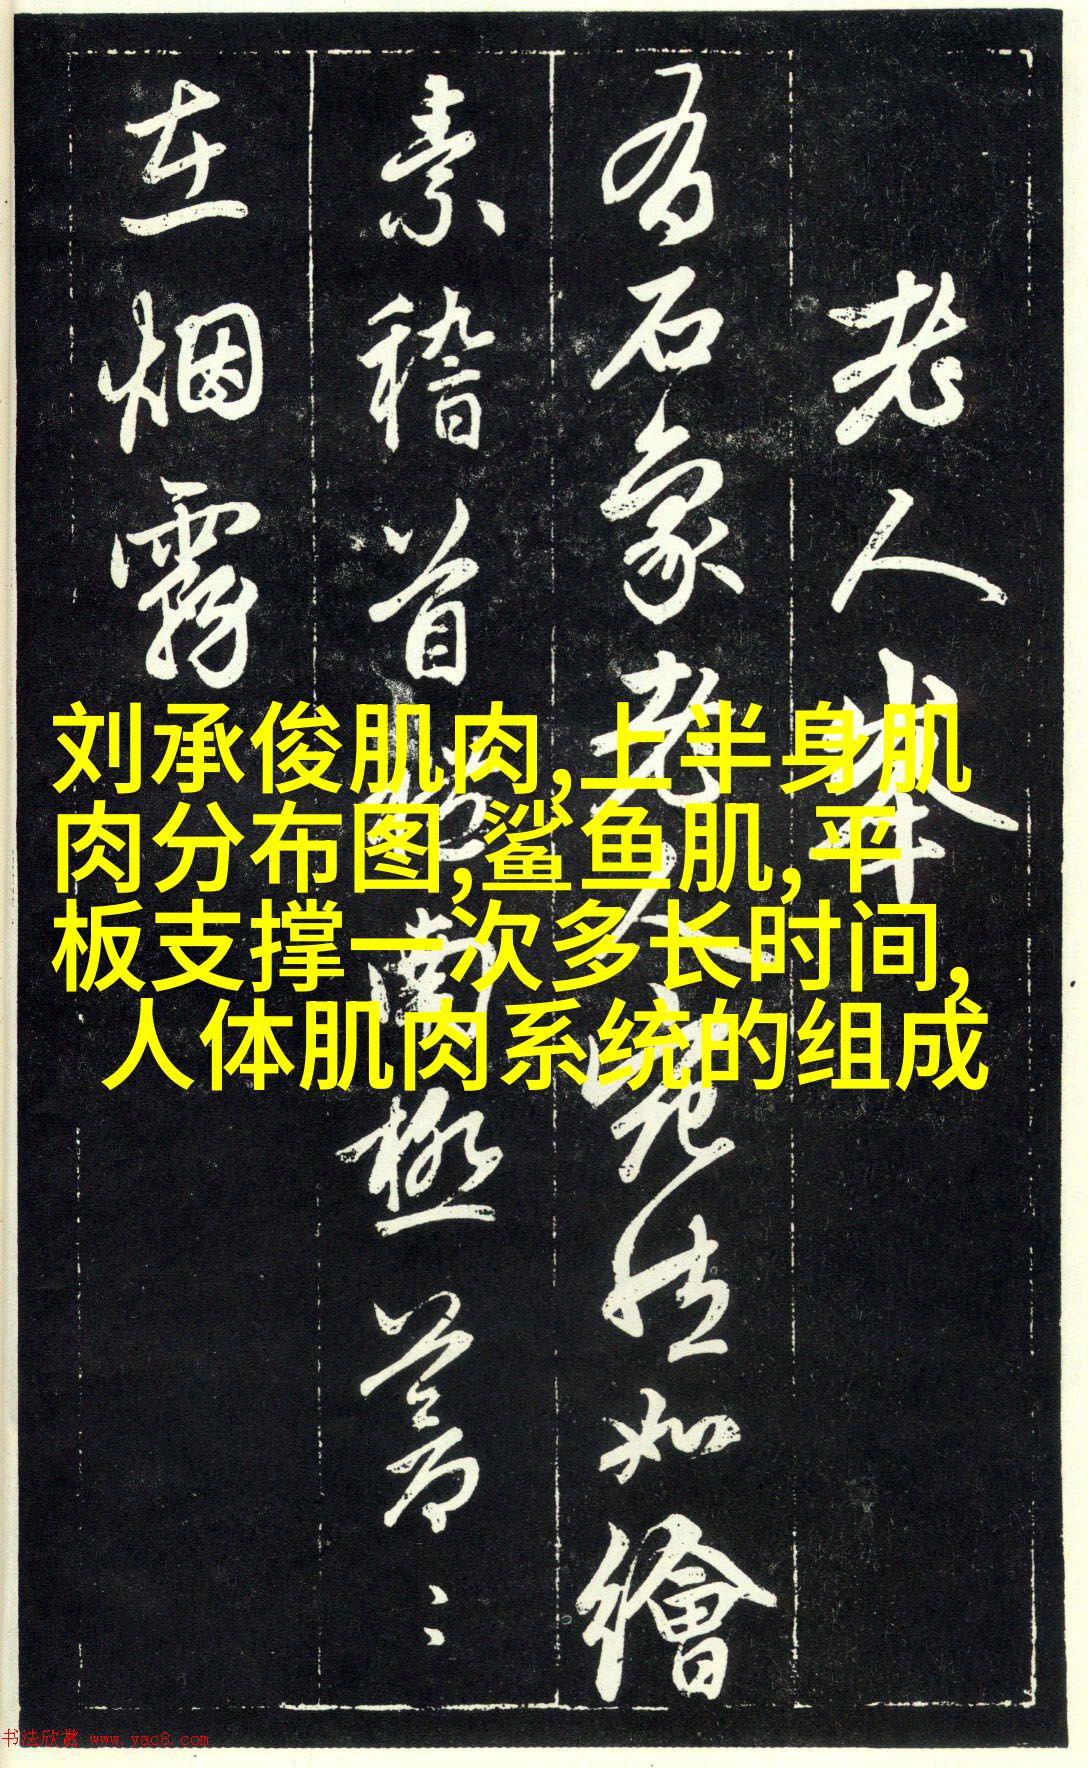 老人峯
有石象老人宛然如繪
素稽首南極蒼〻
在烟霧
刘承俊肌肉,上半身肌
肉分布图,鲨鱼肌,平
板支撑一次多长时间,
人体肌肉系统的组成
书法欣赏 www.yac8.com